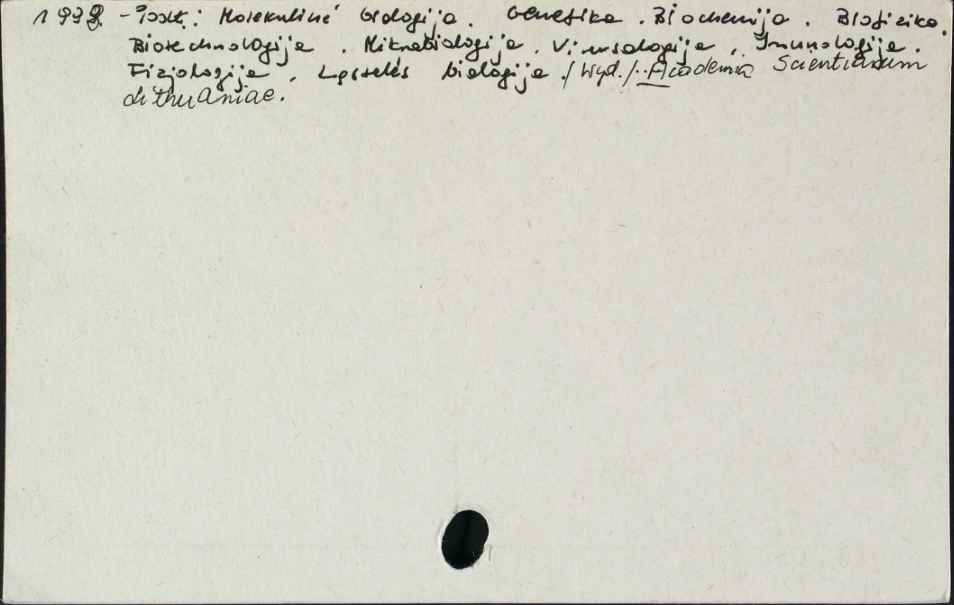 1998 - Podt.: Molekulinė biologija. Genetika. Biochemija. Biofizika.
Biotechnologija. Mikrobiologija. Virusologija. Imunologija.
Fizjologija. Ląstelės biologija. /Wyd./. Academia Scientiarum
Lithuaniae.